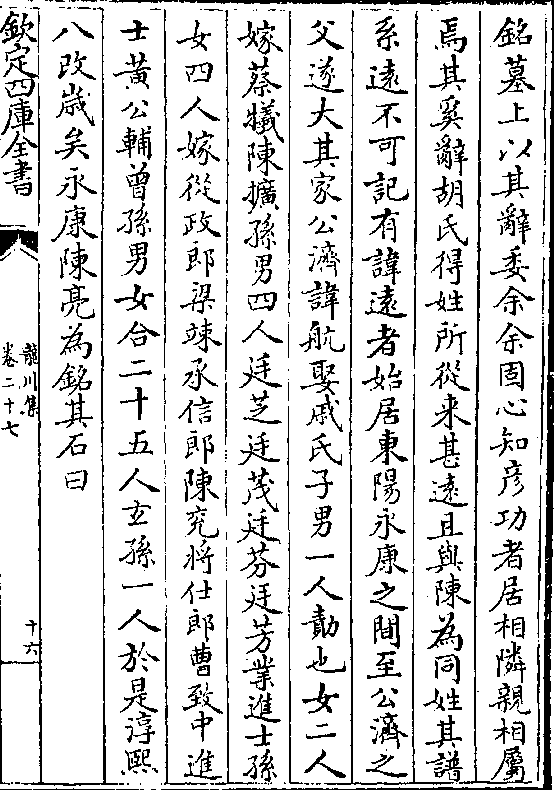 銘墓上以其辭委余余固心知彦功者居相隣親相屬
焉其奚辭胡氏得姓所從来甚遠且與陳為同姓其譜
系遠不可記有諱遠者始居東陽永康之間至公濟之
父遂大其家公濟諱航娶戚氏子男一人勣也女二人
嫁蔡㠖陳擴孫男四人廷芝廷茂廷芬廷芳業進士孫
女四人嫁從政郎梁竦承信郎陳兖將仕郎曹致中進
士黄公輔曾孫男女合二十五人玄孫一人於是淳熙
八改歲矣永康陳亮為銘其石曰
欽定四庫全書
龍川集
卷二十七
十六